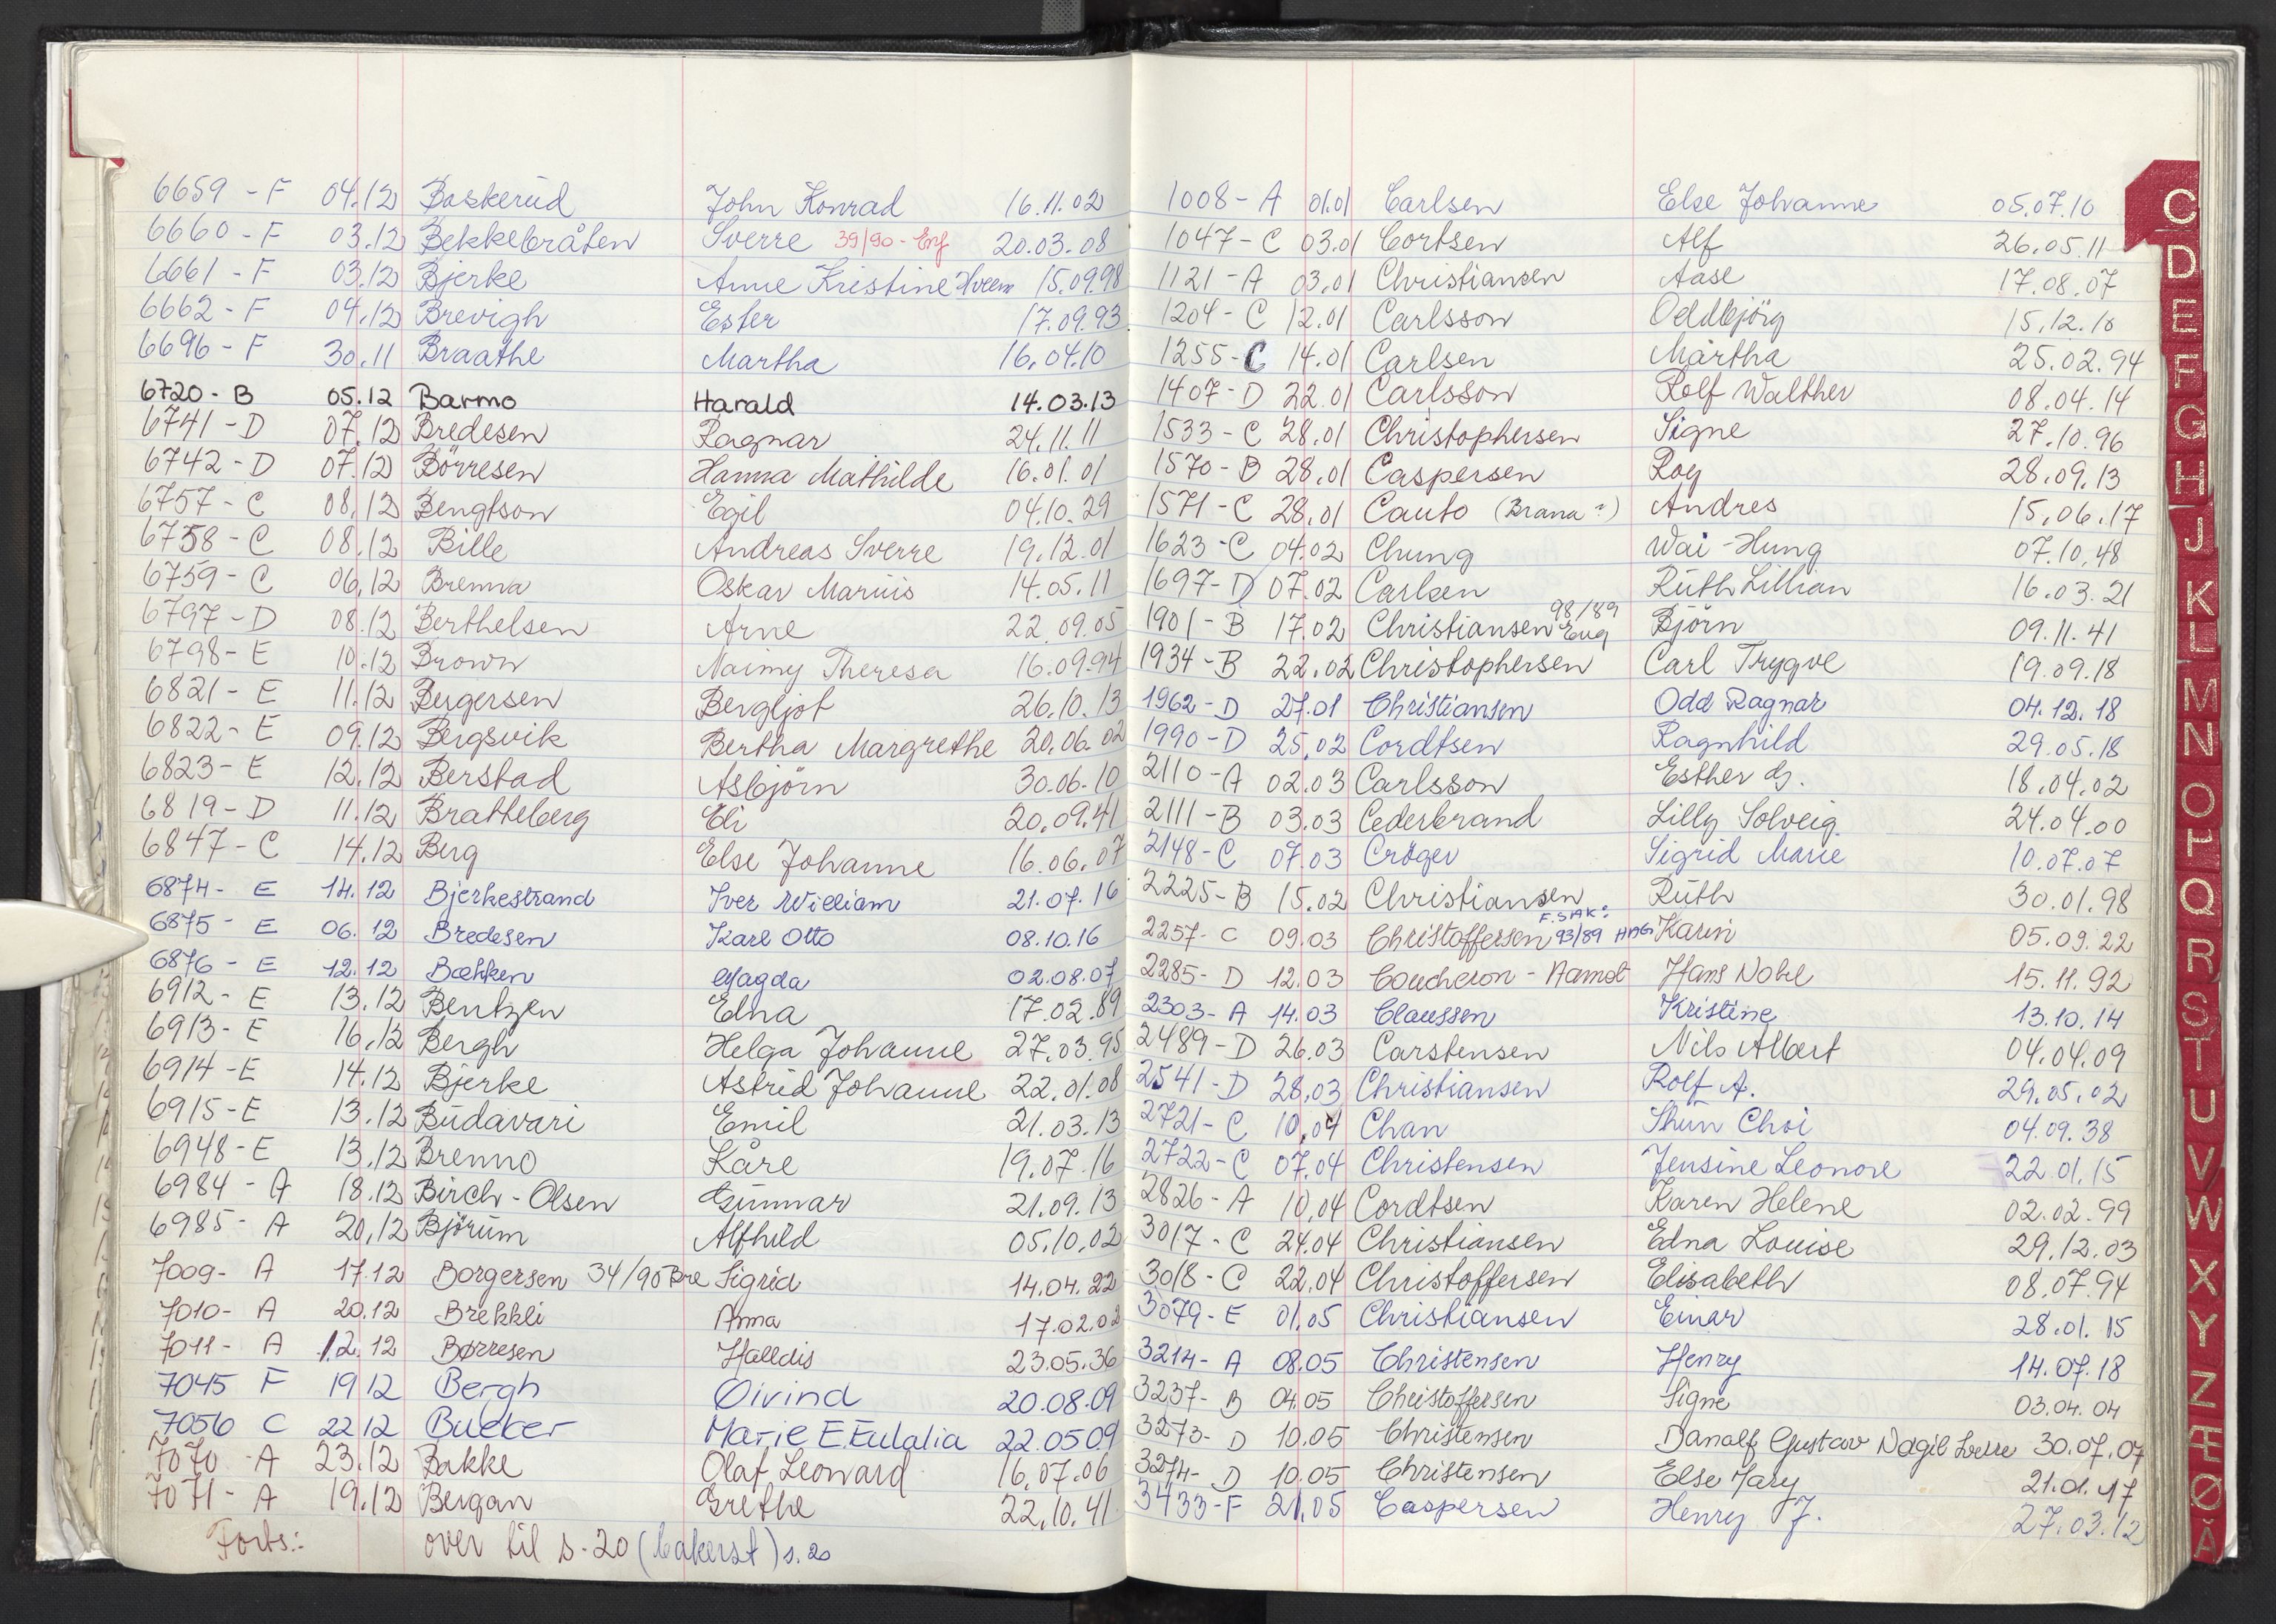 6659 - F 04.12 Baskerud John Konrad 16.11.02
6660 - F 03.12 Bekkebråten Sverre 39/90 - Enf 20.03.08
6661 - F 03.12 Bjerke Anne Kristine Hveem 15.09.98
6662 - F 04.12 Brevigh Ester 17.09.93
6696 - F 30.11 Braathe Martha 16.04.10
6720 - B 05.12 Barmo Harald 14.03.13
6741 - D 07.12 Bredesen Ragnar 24.11.11
6742 - D 07.12 Börresen Hanna Mathilde 16.01.01
6757 - C 08.12 Bengtson Egil 04.10.29
6758 - C 08.12 Bille Andreas Sverre 19.12.01
6759 - C 06.12 Brenna Oskar Marius 14.05.11
6797 - D 08.12 Berthelsen Arne 22.09.05
6798 - E 10.12 Brown Naimy Theresa 16.09.94
6821 - E 11.12 Bergersen Bergljot 26.10.13
6822 - E 09.12 Bergsvik Bertha Margrethe 20.06.02
6823 - E 12.12 Berstad Asbjörn 30.06.10
6819 - D 11.12 Bratteberg Eli 20.09.41
6847 - C 14.12 Berg Else Johanne 16.06.07
6874 - E 14.12 Bjerkestrand Iver William 21.07.16
6875 - E 06.12 Bredesen Karl Otto 08.10.16
6876 - E 12.12 Bæhken Magda 02.08.07
6912 - E 13.12 Bentzen Edna 17.02.89
6913 - E 16.12 Bergh Helga Johanne 27.03.95
6914 - E 14.12 Bjerke Astrid Johanne 22.01.08
6915 - E 13.12 Budavari Emil 21.03.13
6948 - E 13.12 Brenno Kåre 19.07.16
6984 - A 18.12 Birch - Olsen Gunnar 21.09.13
6985 - A 20.12 Bjørum Alfhild 05.10.02
7009 - A 17.12 Borgersen 34/90 Bre Sigrid 14.04.22
7010 - A 20.12 Brekkli Anna 17.02.02
7011 - A 12.12 Børresen Halldis 23.05.36
7045 F 19 12 Bergh Øivind 20.08.09
7056 C 22 12 Buecker Marie E. Eulalia 22.05 09
7070 - A 23.12 Bakke Olaf Leonard 16.07.06
7071 - A 19.12 Bergan Grethe 22.10.41
Forts: over til s. 20 (bakerst) s. 20
1008 - A 01.01 Carlsen Else Johanne 05.07.10
1047 - C 03.01 Cortsen Alf 26.05.11
1121 - A 03.01 Christiansen Aase 17.08.07
1204 - C 12.01 Carlsson Oddbjörg 15.12.10
1255 - C 14.01 Carlsen Märtha 25.02.94
1407 - D 22.01 Carlsson Rolf Walther 08.04.14
1533 - C 28.01 Christophersen Signe 27.10.96
1570 - B 28.01 Caspersen Roy 28.09.13
1571 - C 28.01 Cauto (Brana ?) Andres 15.06.17
1623 - C 04.02 Chung Wai - Hung 07.10.48
1697 - D 07.02 Carlsen Ruth Lillian 16.03.21
1901 - B 17.02 Christiansen 98/89 Eng Björn 09.11.41
1934 - B 22.02 Christophersen Carl Trygve 19.09.18
1962 - D 27.01 Christiansen Odd Ragnar 04.12.18
1990 - D 25.02 Cordtsen Ragnhild 29.05.18
2110 - A 02.03 Carlsson Esther 18.04.02
2111 - B 03.03 Cederbrand Lilly Solveig 24.04.00
2148 - C 07.03 Cröger Sigrid Marie 10.07.07
2225 - B 15.02 Christiansen Ruth 30.01.98
2257 - C 09.03 Christoffersen F.SAK: 93/89 HAG Karin 05.09.22
2285 - D 12.03 Coucheron - Aamot Hans Nobel 15.11.92
2303 - A 14.03 Claussen Kristine 13.10.14
2489 - D 26.03 Carstensen Nils Albert 04.04.09
2541 - D 28.03 Christiansen Rolf A. 29.05.02
2721 - C 10.04 Chan Shun Choi 04.09.38
2722 - C 07.04 Christensen Jensine Leonore 22.01.15
2826 - A 10.04 Cordtsen Karen Helene 02.02.99
3017 - C 24.04 Christiansen Edna Louise 29.12.03
3018 - C 22.04 Christoffersen Elisabeth 08.07.94
3079 - E 01.05 Christiansen Einar 28.01.15
3214 - A 08.05 Christensen Henry 14.07.18
3237 - B 04.05 Christoffersen Signe 03.04.04
3273 - D 10.05 Christensen Danalf Gustav Nagil 30.07.07
3274 - D 10.05 Christensen Else Mary 21.01.17
3433 - F 21.05 Caspersen Henry J. 27.03.12
C
D
E
F
G
H
J
K
L
M
N
O
P
Q
R
S
T
U
V
W
X
Y
Z
Æ
Ø
Å